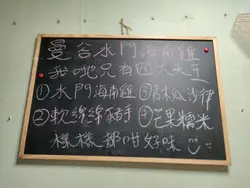 曼谷水門海南雞
我哋只有四大天王
①水門海南雞 ③青木瓜沙律
②軟綿綿豬手 ④芒果糯米
樣樣都咁好味